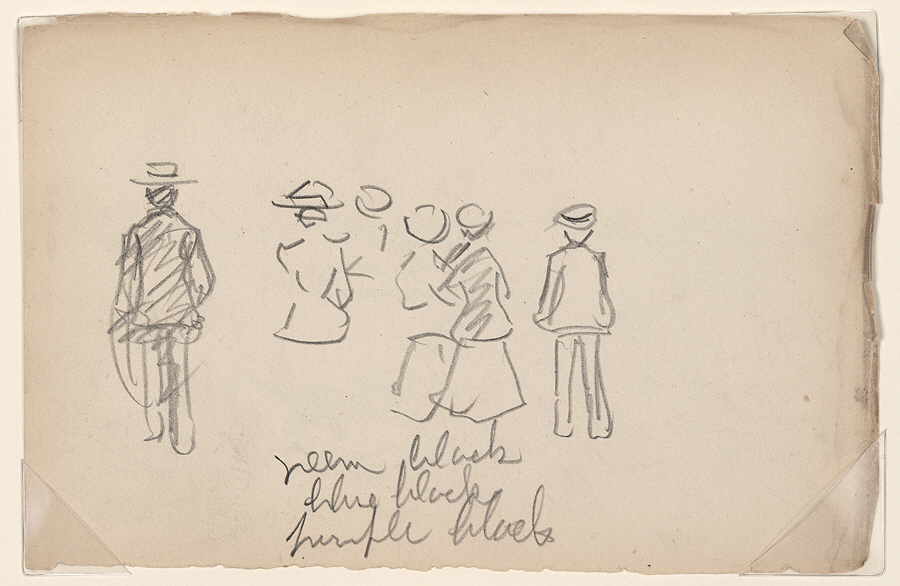 black
blue black
purple black